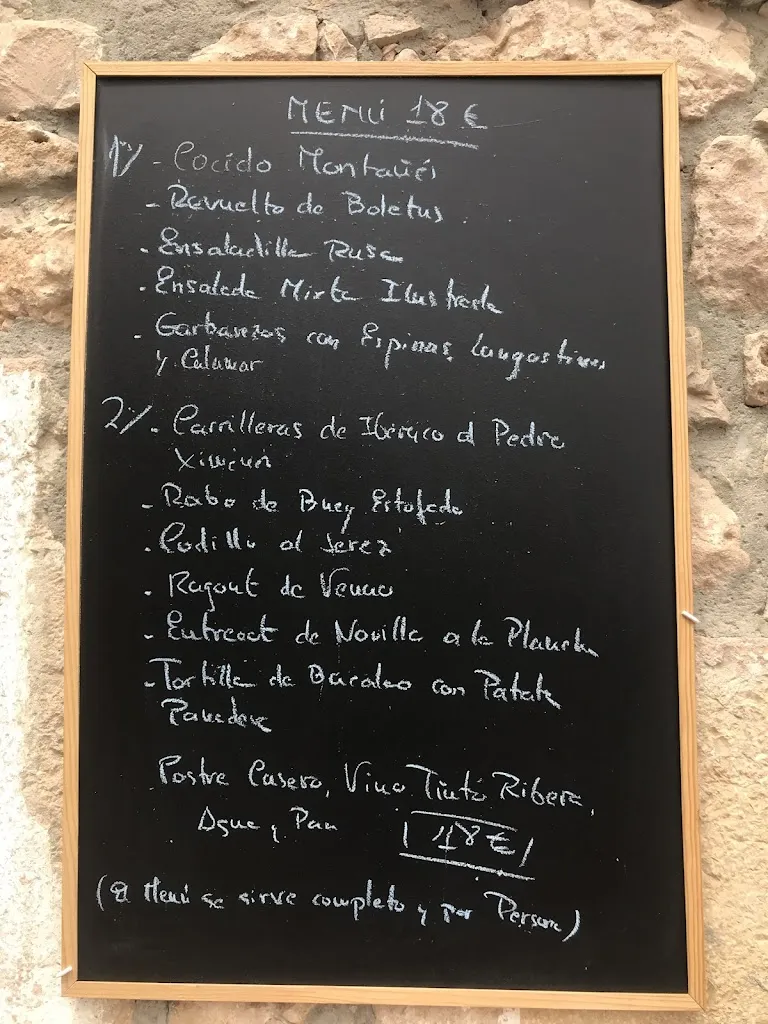 MENÚ 18 €
1/ - Cocido Montañés
- Revuelto de Boletus
- Ensaladilla Rusa
- Ensalada Mixta Ilustrada
- Garbanzos con Espinas, Langostinos
y Calamar
2/ - Carrilleras de Ibérico al Pedro
Ximénez
- Rabo de Buey Estofado
- Codillo al Jerez
- Ragout de Venao
- Entrecot de Novillo a la Plancha
- Tortilla de Bacalao con Patata
Panadera
Postre Casero, Vino Tinto Ribera,
Agua y Pan 18 €
(El Menú se sirve completo y por Persona)